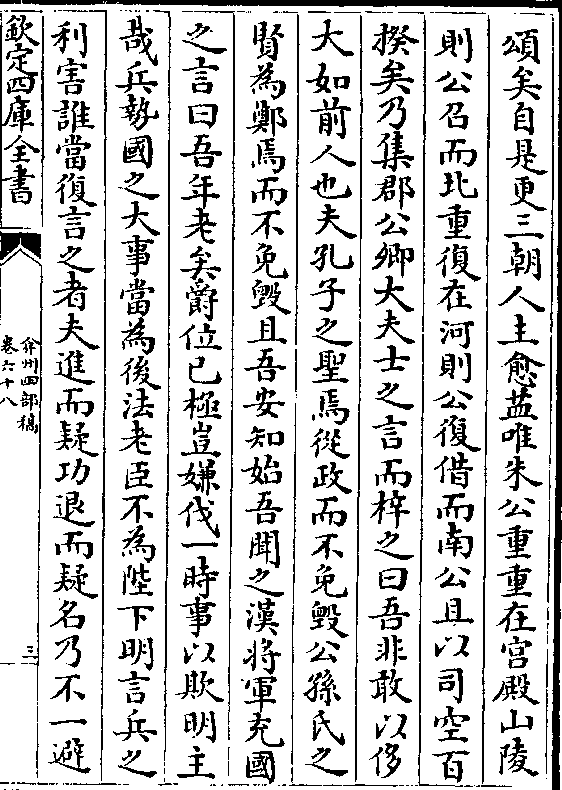 頌矣自是更三朝人主愈益唯朱公重重在宫殿山陵
則公召而北重復在河則公復借而南公且以司空百
揆矣乃集郡公卿大夫士之言而梓之曰吾非敢以侈
大如前人也夫孔子之聖焉從政而不免毁公孫氏之
賢為鄭焉而不免毁且吾安知始吾聞之漢將軍充國
之言曰吾年老矣爵位已極豈嫌伐一時事以欺明主
哉兵埶國之大事當為後法老臣不為陛下明言兵之
利害誰當復言之者夫進而疑功退而疑名乃不一避
欽定四庫全書
弇州四部稿
卷六十八
三